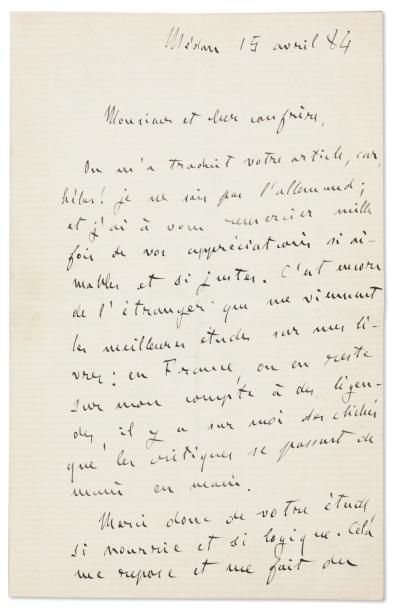 Médan 15 avril 84
Monsieur et cher confrère,
On m'a traduit votre article, car,
hélas! je ne sais pas l'allemand;
et j'ai à vous remercier mille
fois de vos appréciations si ai-
mables et si justes. C'est encore
de l'étranger que me viennent
les meilleures études sur mes li-
vres: en France, on en reste
sur mon compte à des légen-
des, il y a sur moi des clichés
que les critiques se passent de
main en main.
Merci donc de votre étude
si nourrie et si logique. Cela
me repose et me fait du